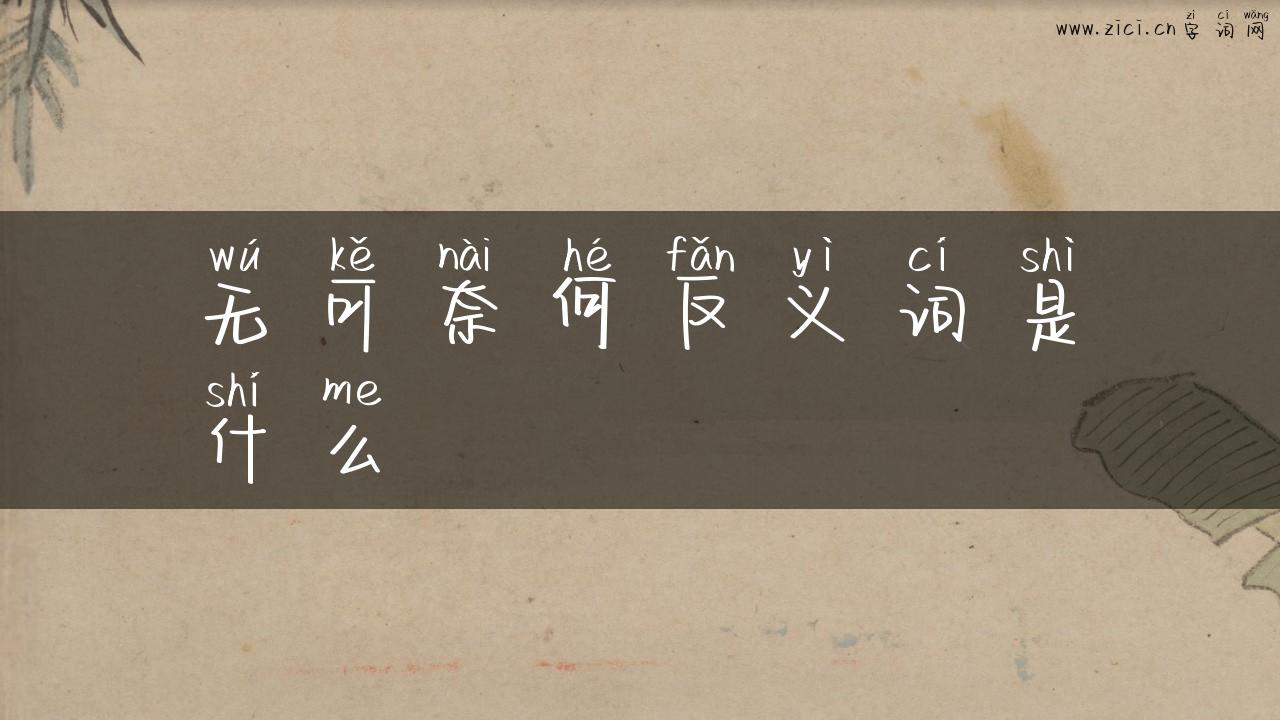 zì cí wǎng
www.zici.cn 字词网
wú kě nài hé fǎn yì cí shì
无可奈何反义词是
shí me
什么